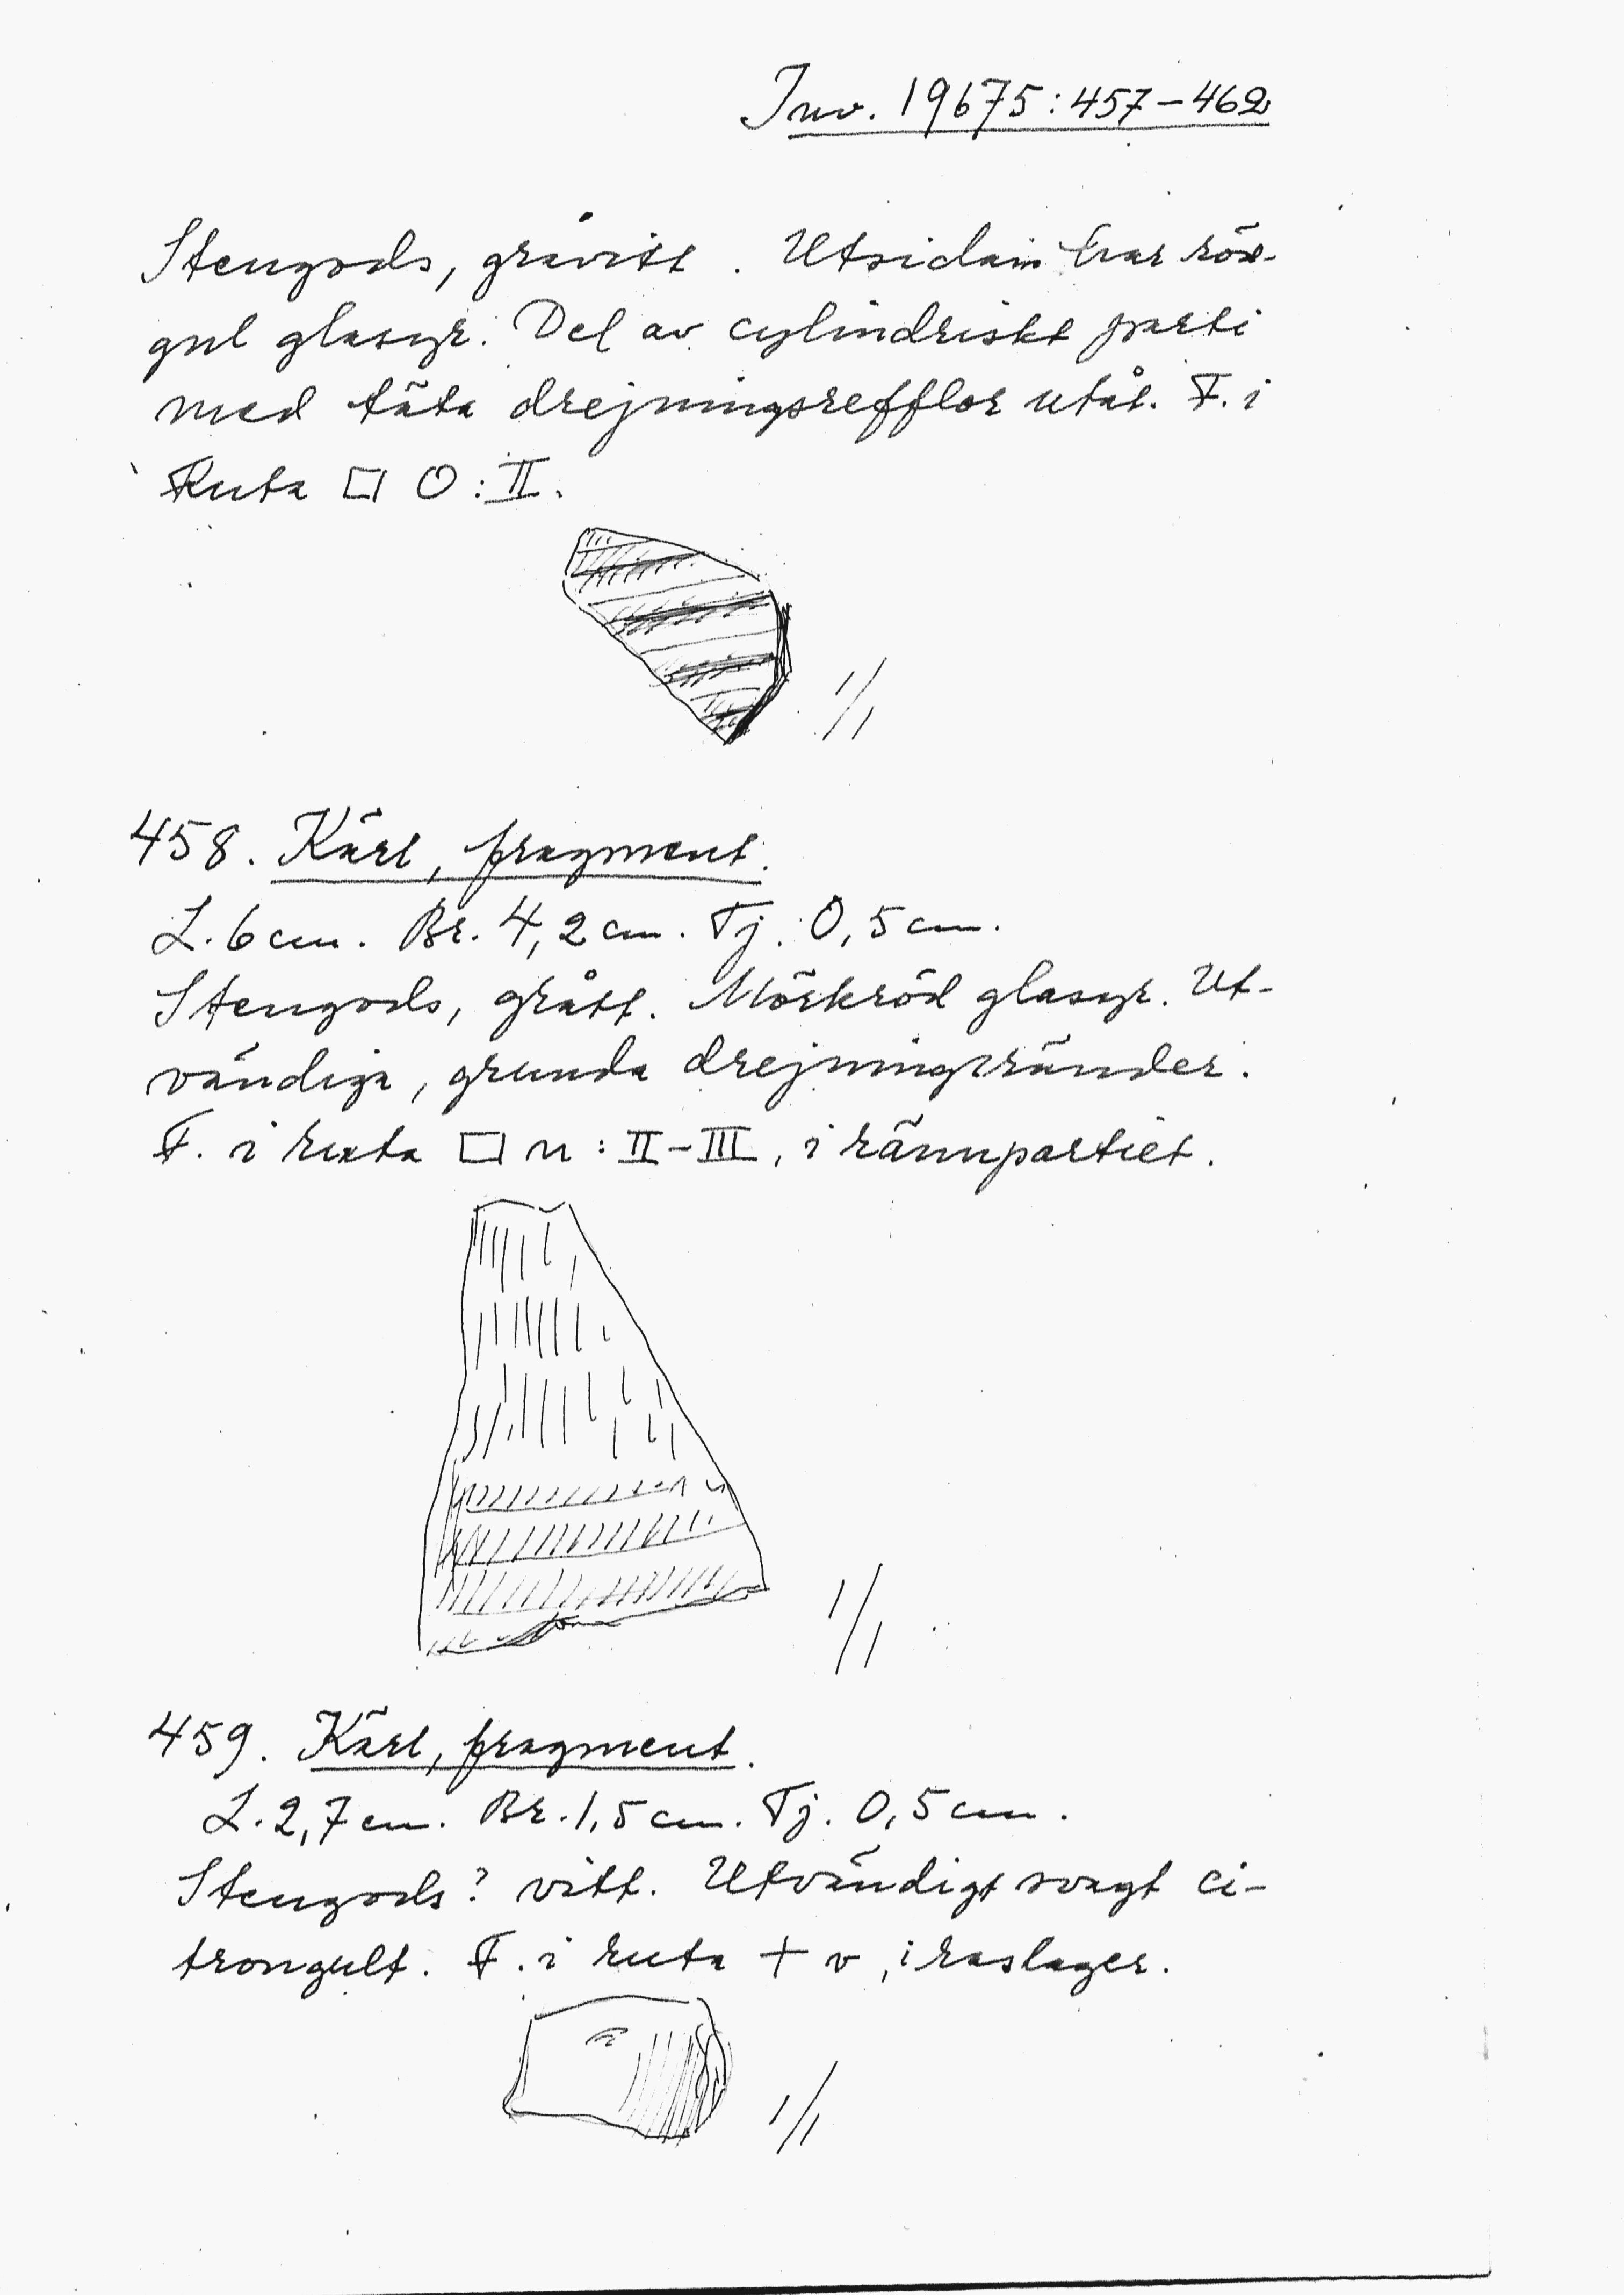 Inv. 19675:457-462
Stengods, gråvitt. Utsidan har röd-
gul glasyr. Del av cylindriskt parti
med täta drejningsrefflor utåt. F. i
Ruta □ O:II.
1/1
458. Kärl, fragment.
L. 6 cm. Br. 4,2 cm. Tj. 0,5 cm.
Stengods, grått. Mörkröd glasyr. Ut-
vändiga, grunda drejningsränder.
F. i ruta □ n: II-III, i rännpartiet.
1/1
459. Kärl, fragment.
L. 2,7 cm. Br. 1,5 cm. Tj. 0,5 cm.
Stengods? vitt. Utvändigt svagt ci-
trongult. F. i ruta + v, i raslager.
1/1